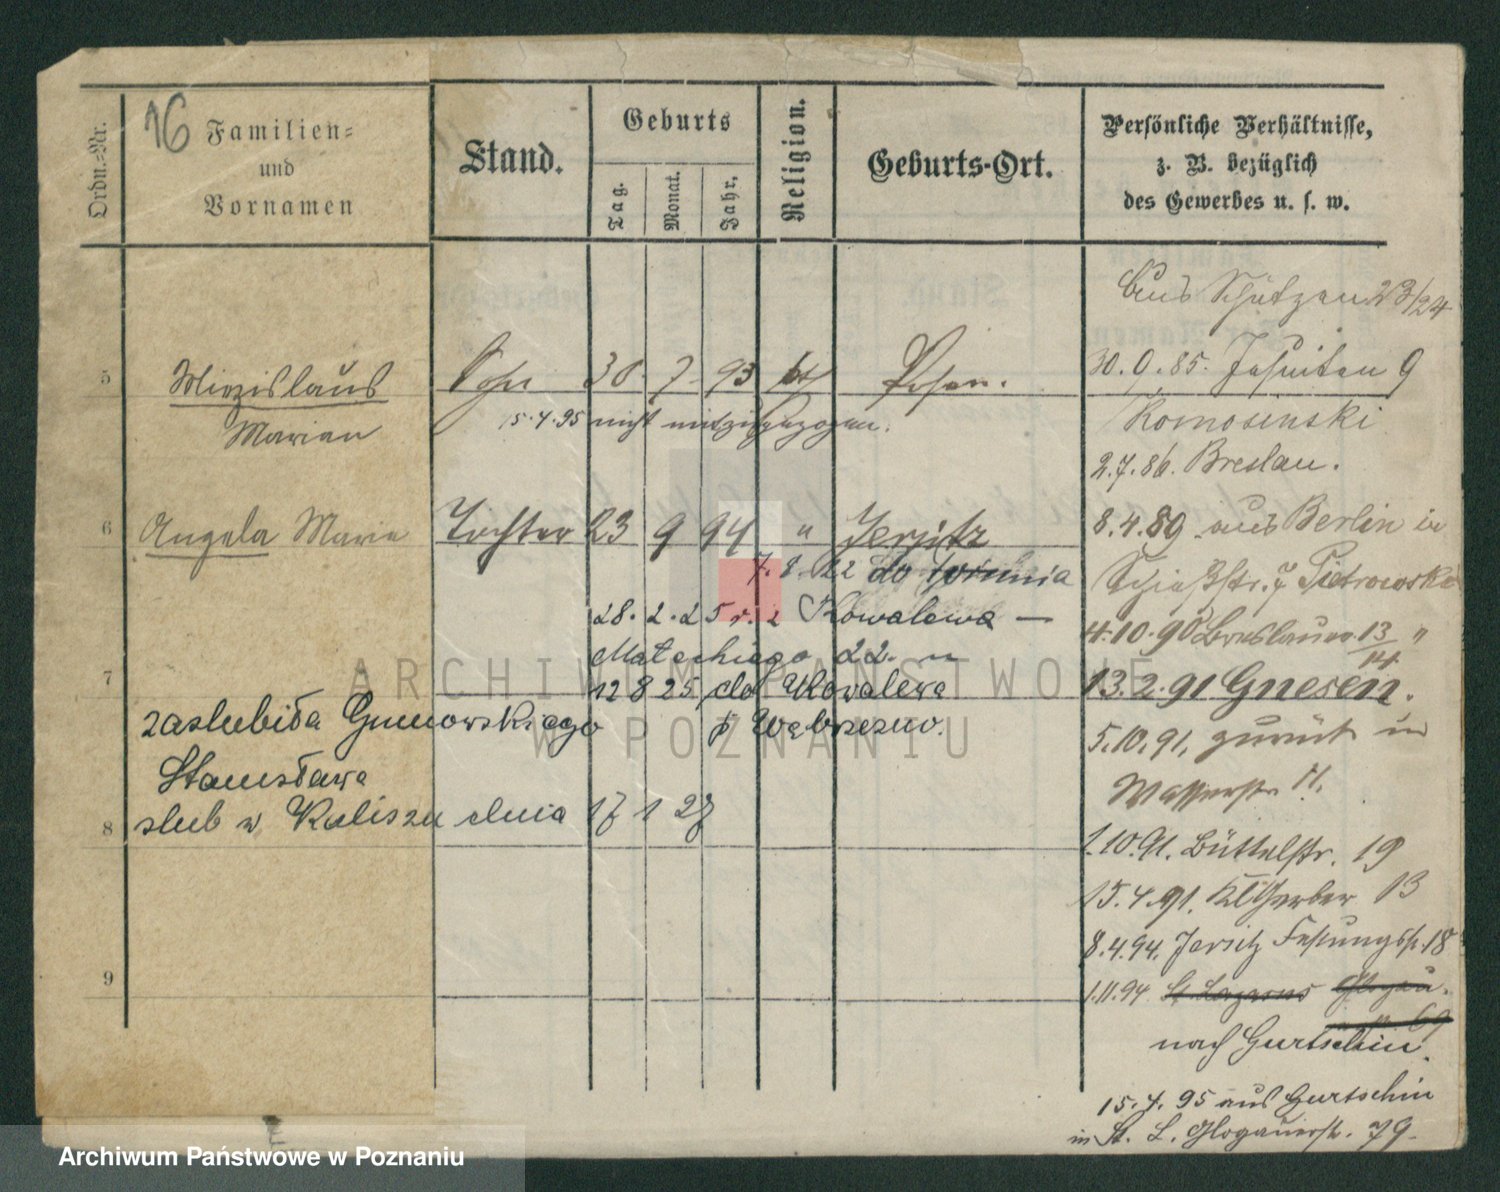 16
Ordn.=Nr.
Familien=
und
Vornamen
Stand.
Geburts
Tag.
Monat.
Jahr.
Religion.
Geburts-Ort.
Persönliche Verhältnisse,
z. B. bezüglich
des Gewerbes u. s. w.
aus Schützen 23/24
5 Miezislaus Sohn 30. 7. 93 kth Posen.
Marian
15.4.95 nicht mitzugezogen.
30.9.85. Jesuiten 9
Komosinski
2.7.86. Breslau.
6 Angela Maria Tochter 23 9 94 " Jersitz
8.4.89 aus Berlin in
7.8.22 do Torunia
Schießstr. 7 Pietrowski
28.2.25 r. z Kowalewa —
4.10.90 Breslauer 13/14 "
Matejkiego 22.
7
12 8 25 do Kowalewa
13.2.91 Gnesen.
zaslubiła Gumowskiego
p Wąbrzezno.
5.10.91. zurück in
Stanisława
Wasserstr. 11.
8 slub w Kaliszu dnia 17 1 27
1.10.91. Büttelstr. 19
15.4.91. Kl Gerber 13
8.4.94. Jersitz Festungsstr. 18
9
1.11.94 St. Lazarus Glogau.
69
nach Gurtschin.
15.4.95 aus Gurtschin
in St. L. Glogauerstr. 79.
ARCHIWUM PAŃSTWOWE
W POZNANIU
Archiwum Państwowe w Poznaniu